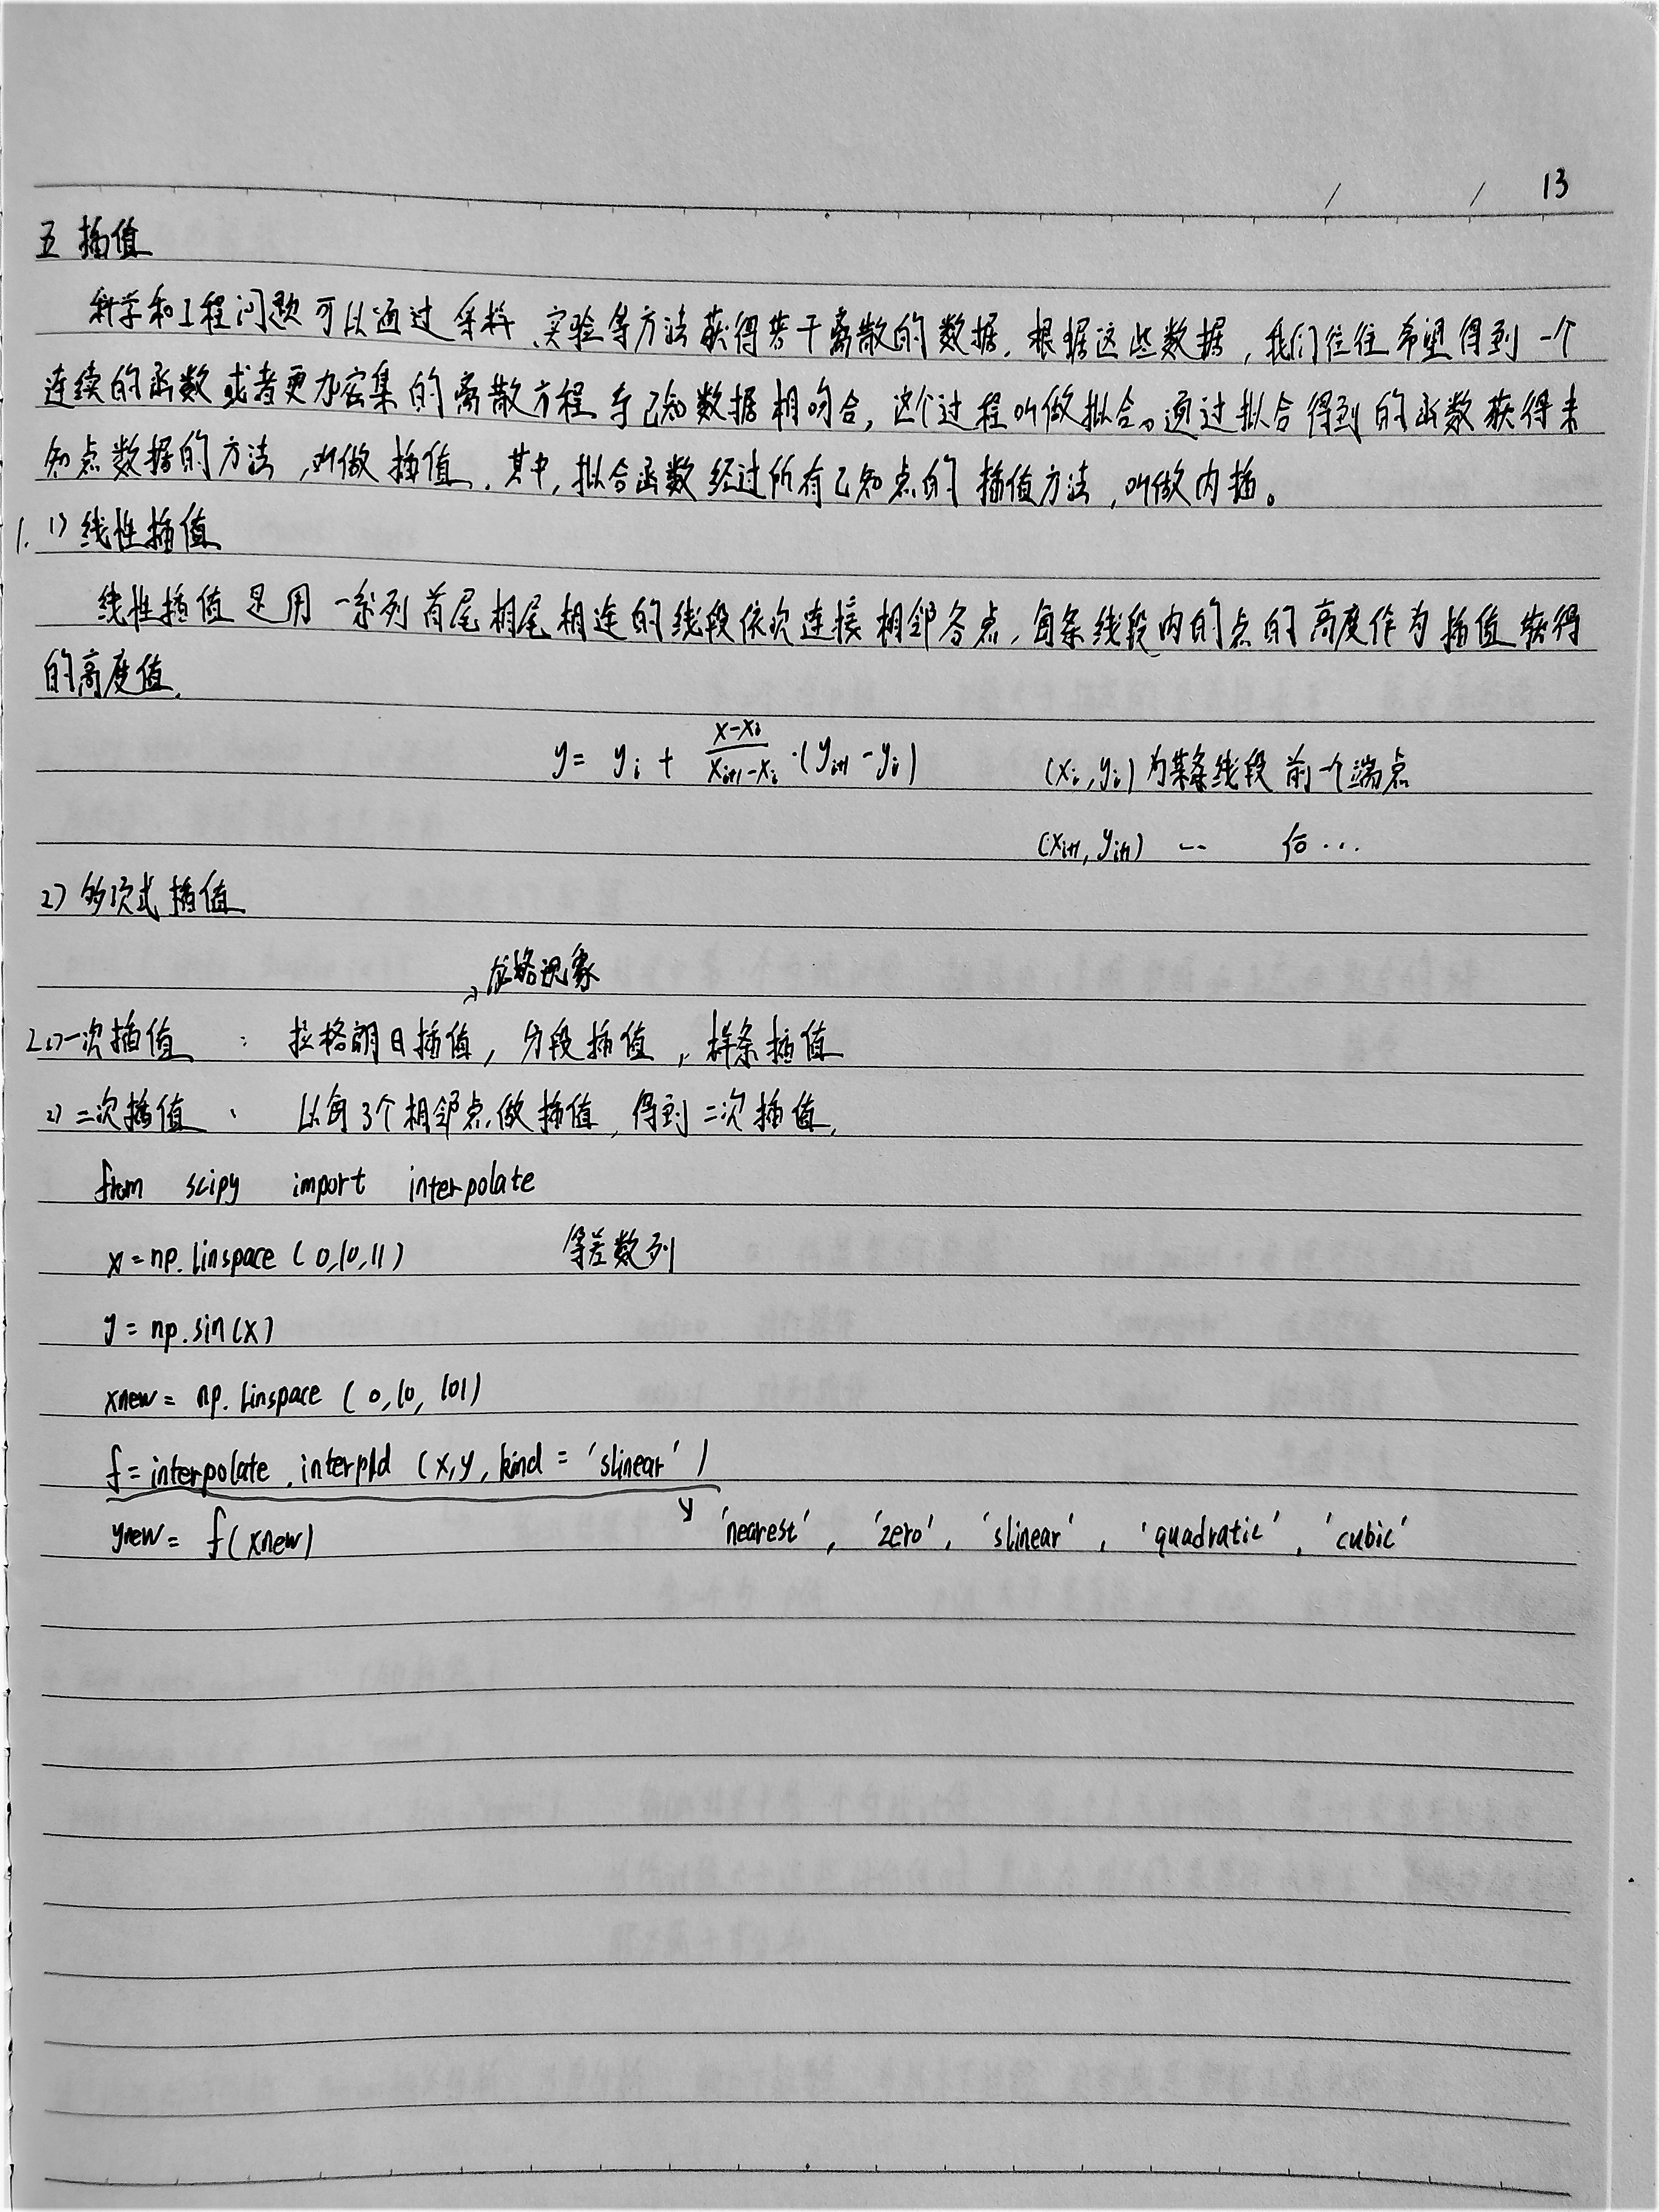 13
五 插值
科学和工程问题可以通过采样、实验等方法获得若干离散的数据.根据这些数据,我们往往希望得到一个
连续的函数或者更加密集的离散方程与已知数据相吻合,这个过程叫做拟合。通过拟合得到的函数获得未
知点数据的方法,叫做插值.其中,拟合函数经过所有已知点的插值方法,叫做内插。
1. 1) 线性插值
线性插值是用一系列首尾相尾相连的线段依次连接相邻各点,每条线段内的点的高度作为插值获得
的高度值.
y = yi + (x-xi)/(xi+1-xi) ·(yi+1-yi) (xi,yi)为某条线段前一个端点
(xi+1, yi+1) … 后…
2) 多项式插值
现象
2.1)一次插值 : 拉格朗日插值,分段插值,样条插值
2) 二次插值 : 以每3个相邻点做插值,得到二次插值.
from scipy import interpolate
x=np.linspace(0,10,11) 等差数列
y=np.sin(x)
xnew=np.linspace(0,10,101)
f=interpolate.interp1d(x,y,kind='slinear')
ynew=f(xnew) 'nearest','zero','slinear','quadratic','cubic'